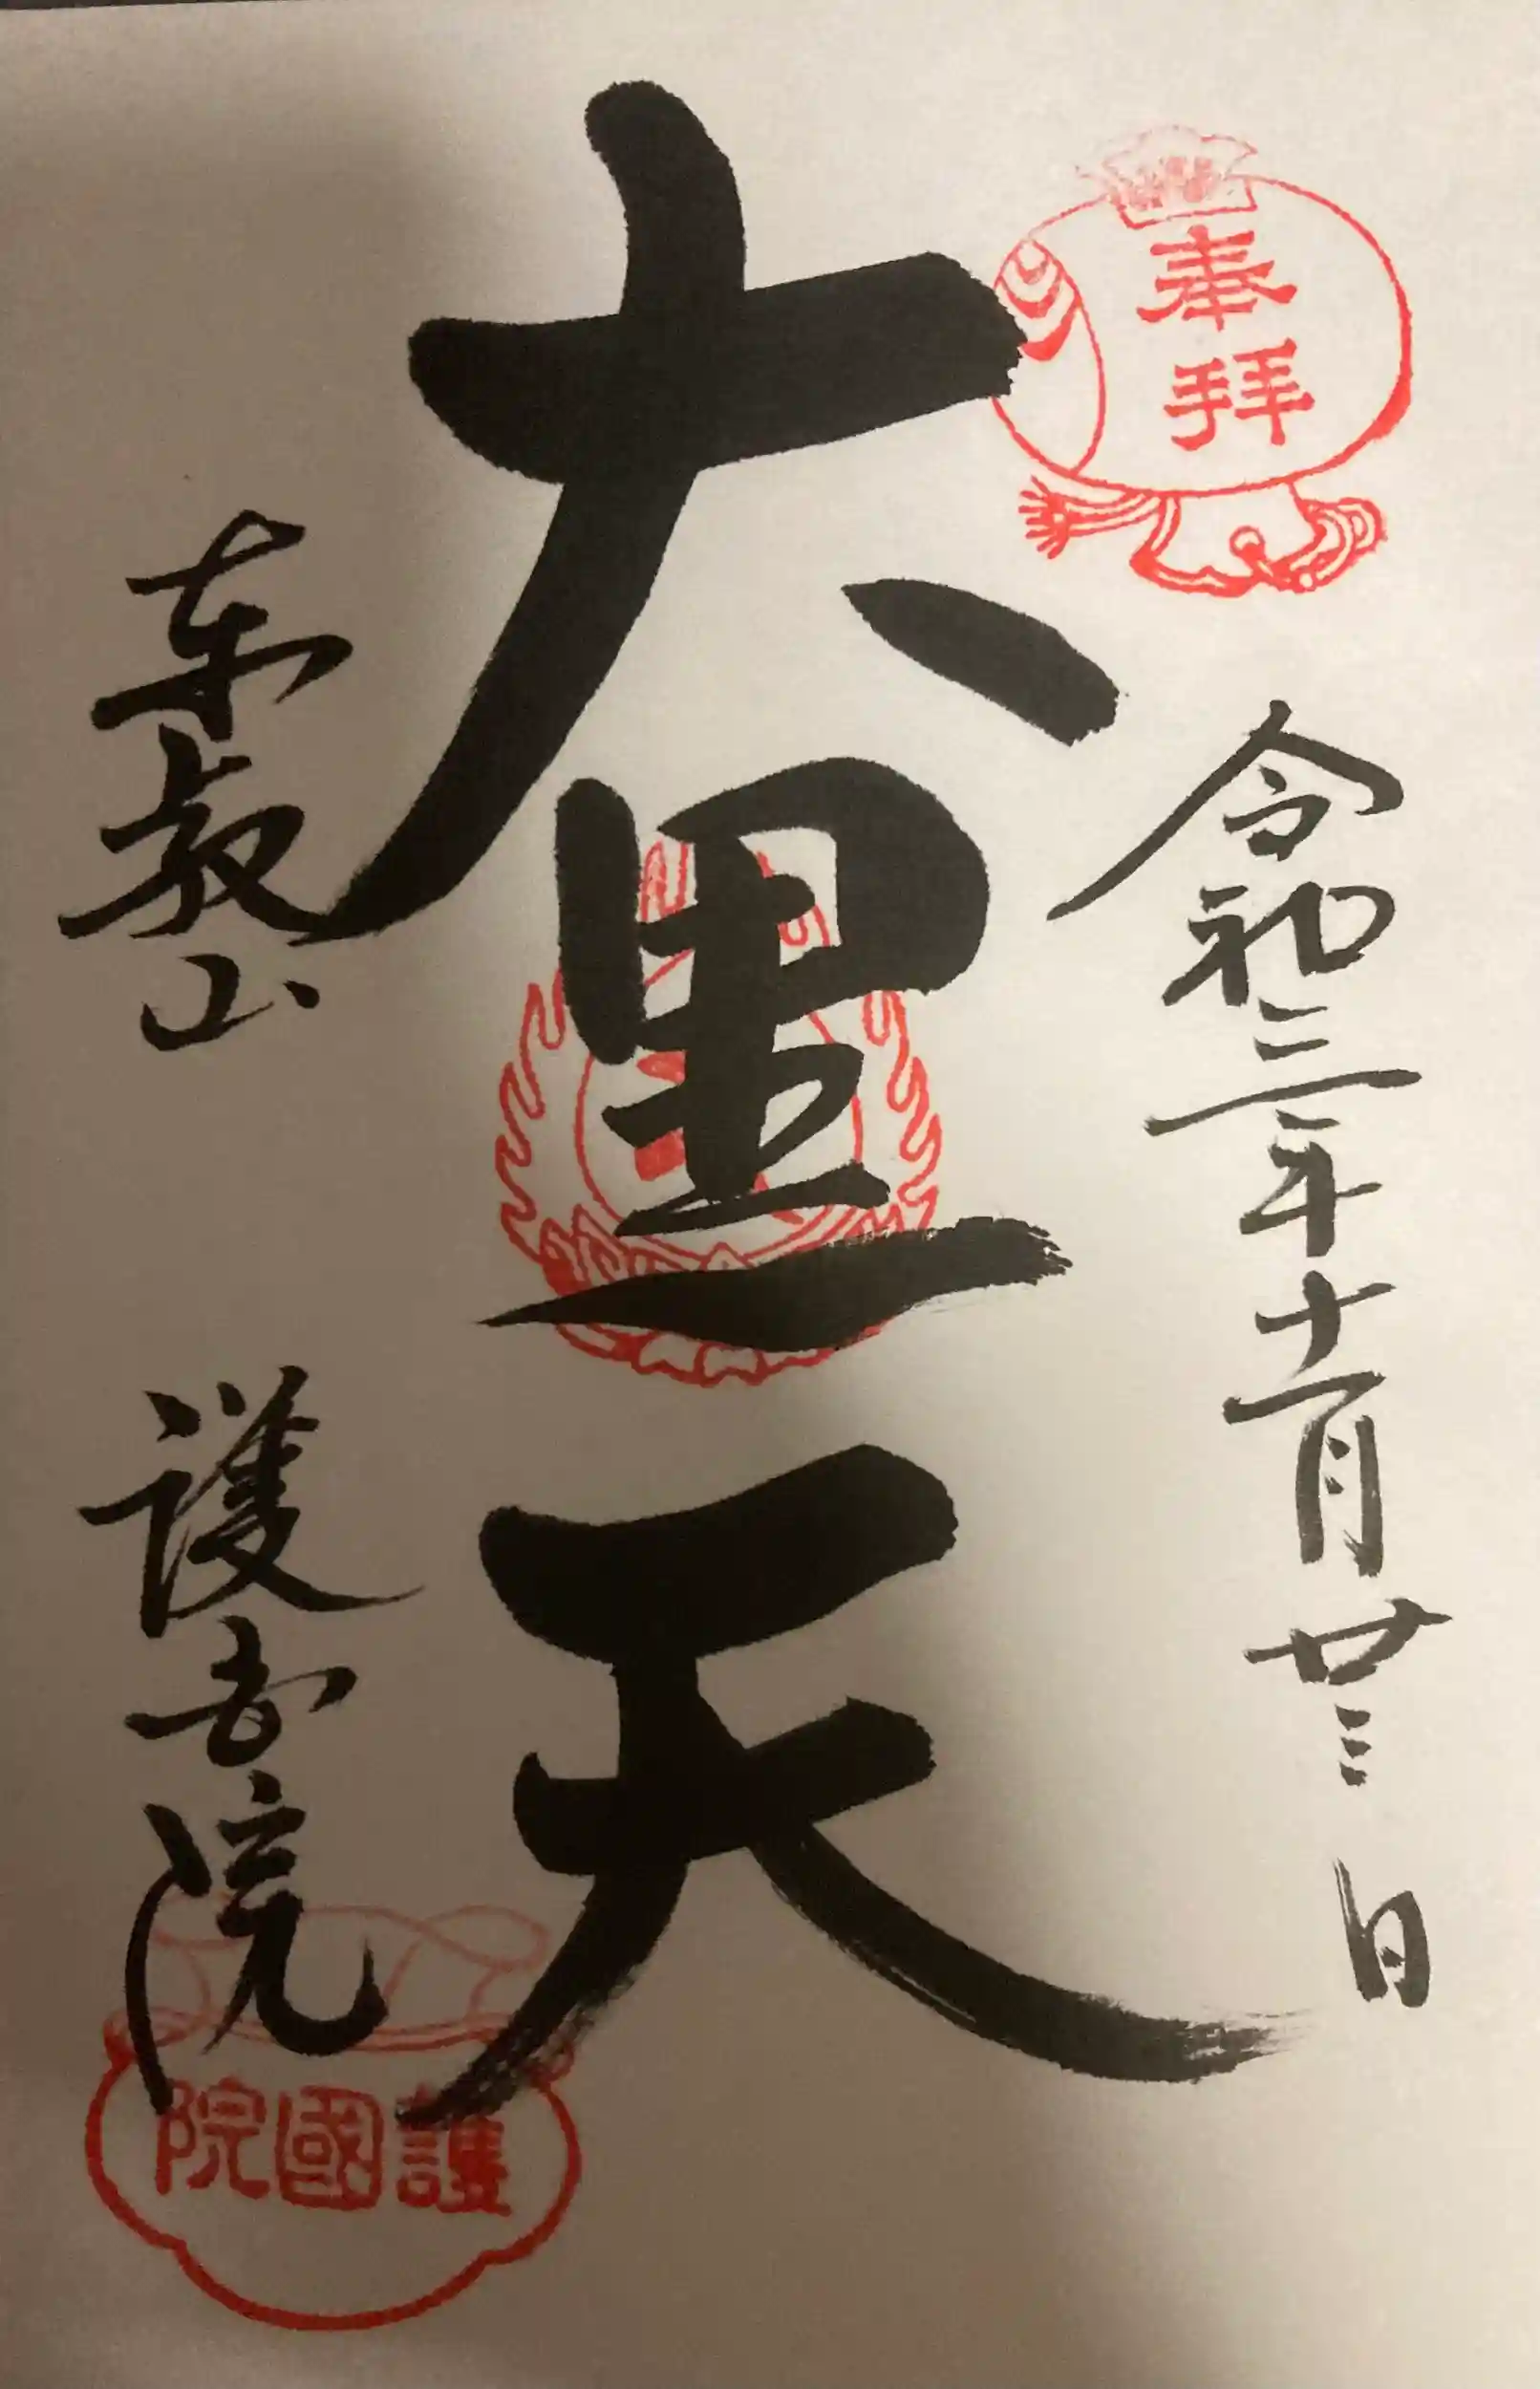 奉拝
令和三年十一月廿三日
大黒天
東叡山 護国院
護國院